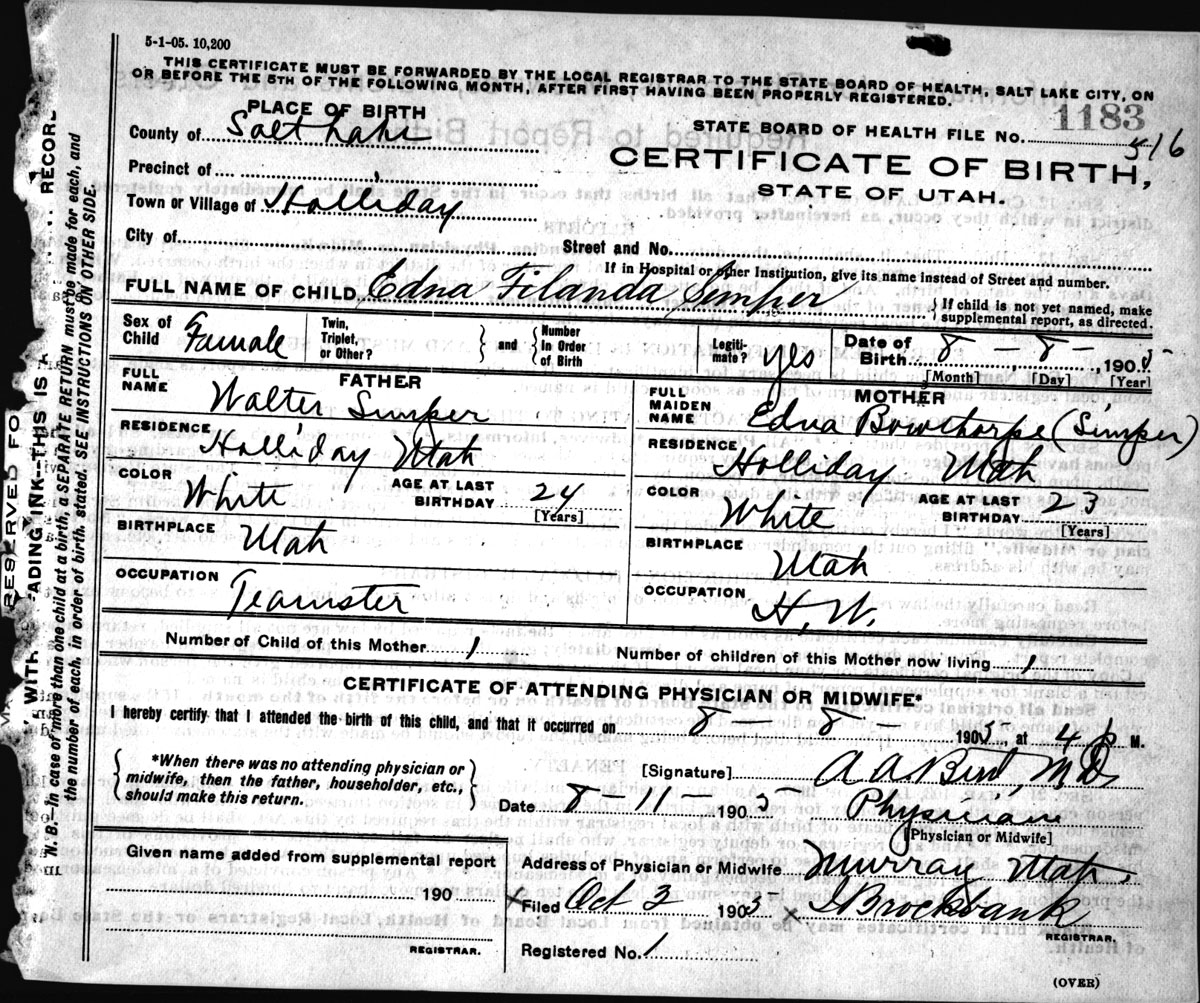 5-1-05. 10,200
THIS CERTIFICATE MUST BE FORWARDED BY THE LOCAL REGISTRAR TO THE STATE BOARD OF HEALTH, SALT LAKE CITY, ON
OR BEFORE THE 5TH OF THE FOLLOWING MONTH, AFTER FIRST HAVING BEEN PROPERLY REGISTERED.
PLACE OF BIRTH
County of Salt Lake
STATE BOARD OF HEALTH FILE No. 1183
516
CERTIFICATE OF BIRTH,
STATE OF UTAH.
Precinct of
Town or Village of Holliday
City of Street and No.
If in Hospital or other Institution, give its name instead of Street and number.
FULL NAME OF CHILD Edna Filanda Simper
If child is not yet named, make
supplemental report, as directed.
Sex of Child Famale
Twin, Triplet, or Other?
and
Number In Order of Birth
Legiti-mate? yes
Date of Birth 8 - 8 - , 1905
[Month] [Day] [Year]
FATHER
FULL NAME Walter Simper
RESIDENCE Holliday Utah
COLOR White AGE AT LAST BIRTHDAY 24
[Years]
BIRTHPLACE Utah
OCCUPATION Teamster
MOTHER
FULL MAIDEN NAME Edna Bowthorpe (Simper)
RESIDENCE Holliday Utah
COLOR White AGE AT LAST BIRTHDAY 23
[Years]
BIRTHPLACE Utah
OCCUPATION H. W.
Number of Child of this Mother 1 Number of children of this Mother now living 1
CERTIFICATE OF ATTENDING PHYSICIAN OR MIDWIFE.
I hereby certify that I attended the birth of this child, and that it occurred on 8 8 1905, at 4 p M.
*When there was no attending physician or
midwife, then the father, householder, etc.,
should make this return.
[Signature] A A Bird, M.D.
Date 8 - 11 - 1905 Physician
[Physician or Midwife]
Given name added from supplemental report
190
REGISTRAR.
Address of Physician or Midwife Murray Utah.
x Filed Oct 3 1905 x J Brockbank
REGISTRAR.
Registered No. 1
(OVER)
RESERVED FO
ADING INK--THIS IS
RECORD
Y WITH
N. B.--In case of more than one child at a birth, a SEPARATE RETURN must be made for each, and
the number of each, in order of birth, stated. SEE INSTRUCTIONS ON OTHER SIDE.